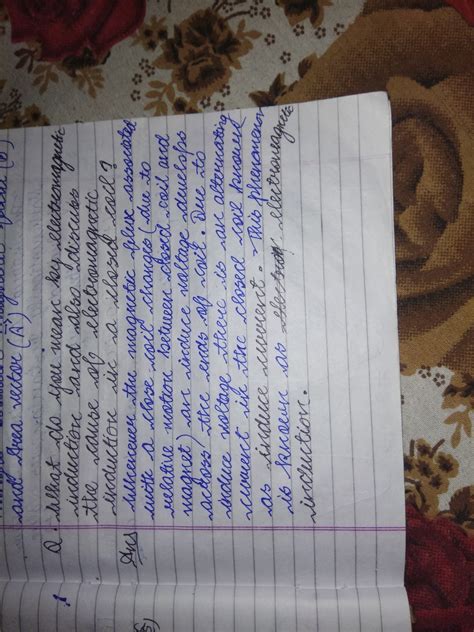 and Area vector (A)
Q. What do you mean by electromagnetic
induction and also discuss
the cause of electromagnetic
induction in a closed coil?
Ans Whenever the magnetic flux associated
with a close coil changes (due to
relative motion between closed coil and
magnet) an induce voltage develops
across the ends of coil. Due to
induce voltage there is an alternating
current in the closed coil known
as induce current. This phenomenon
is known as electromagnetic
induction.